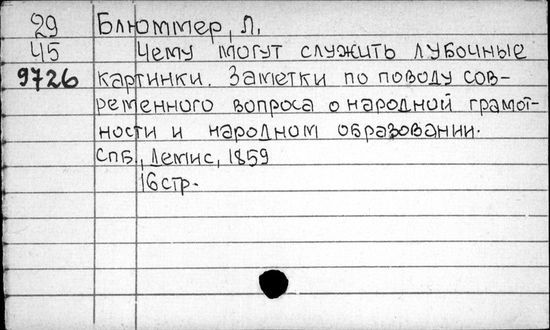 29 Блюммер, Л.
45 Чему могут служить лубочные
9726 картинки. Заметки по поводу сов-
ременного вопроса о народной грамот-
ности и народном образовании.
СПБ., Демис, 1859
16 стр.